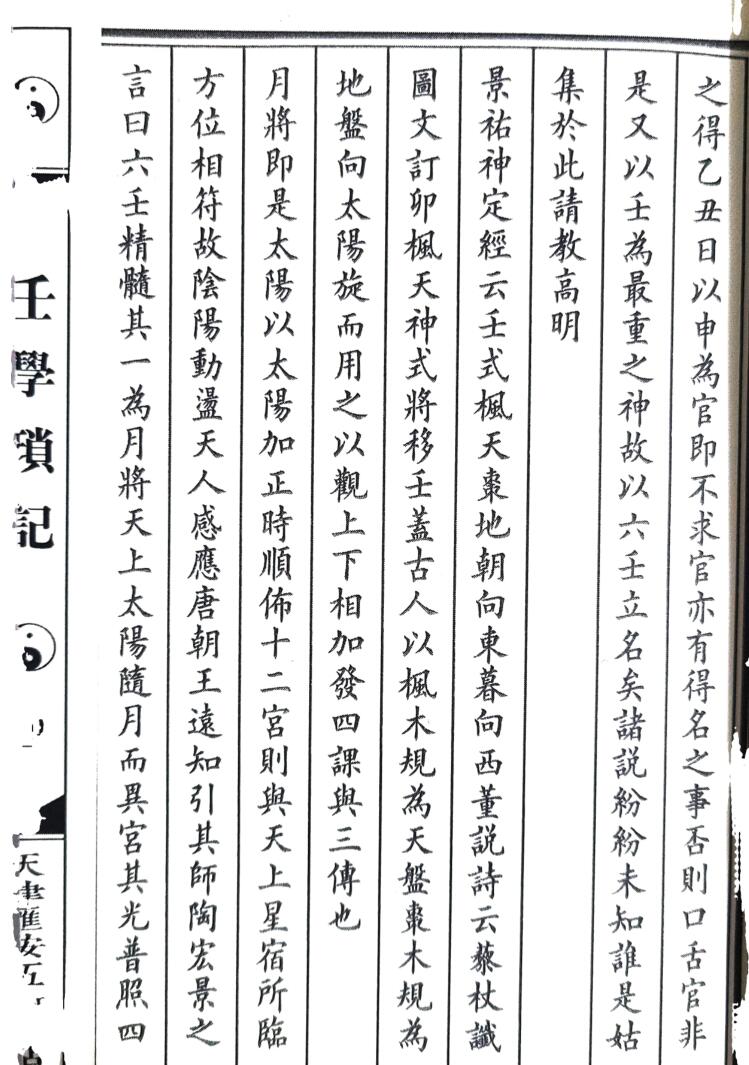 之得乙丑日以申為官即不求官亦有得名之事否則口舌官非
是又以壬為最重之神故以六壬立名矣諸説紛紛未知誰是姑
集於此請教高明
景祐神定經云壬式楓天棗地朝向東暮向西董説詩云藜杖讖
圖文訂卯楓天神式將移壬蓋古人以楓木規為天盤棗木規為
地盤向太陽旋而用之以觀上下相加發四課與三傳也
月將即是太陽以太陽加正時順佈十二宮則與天上星宿所臨
方位相符故陰陽動盪天人感應唐朝王遠知引其師陶宏景之
言曰六壬精髓其一為月將天上太陽隨月而異宮其光普照四
壬學瑣記